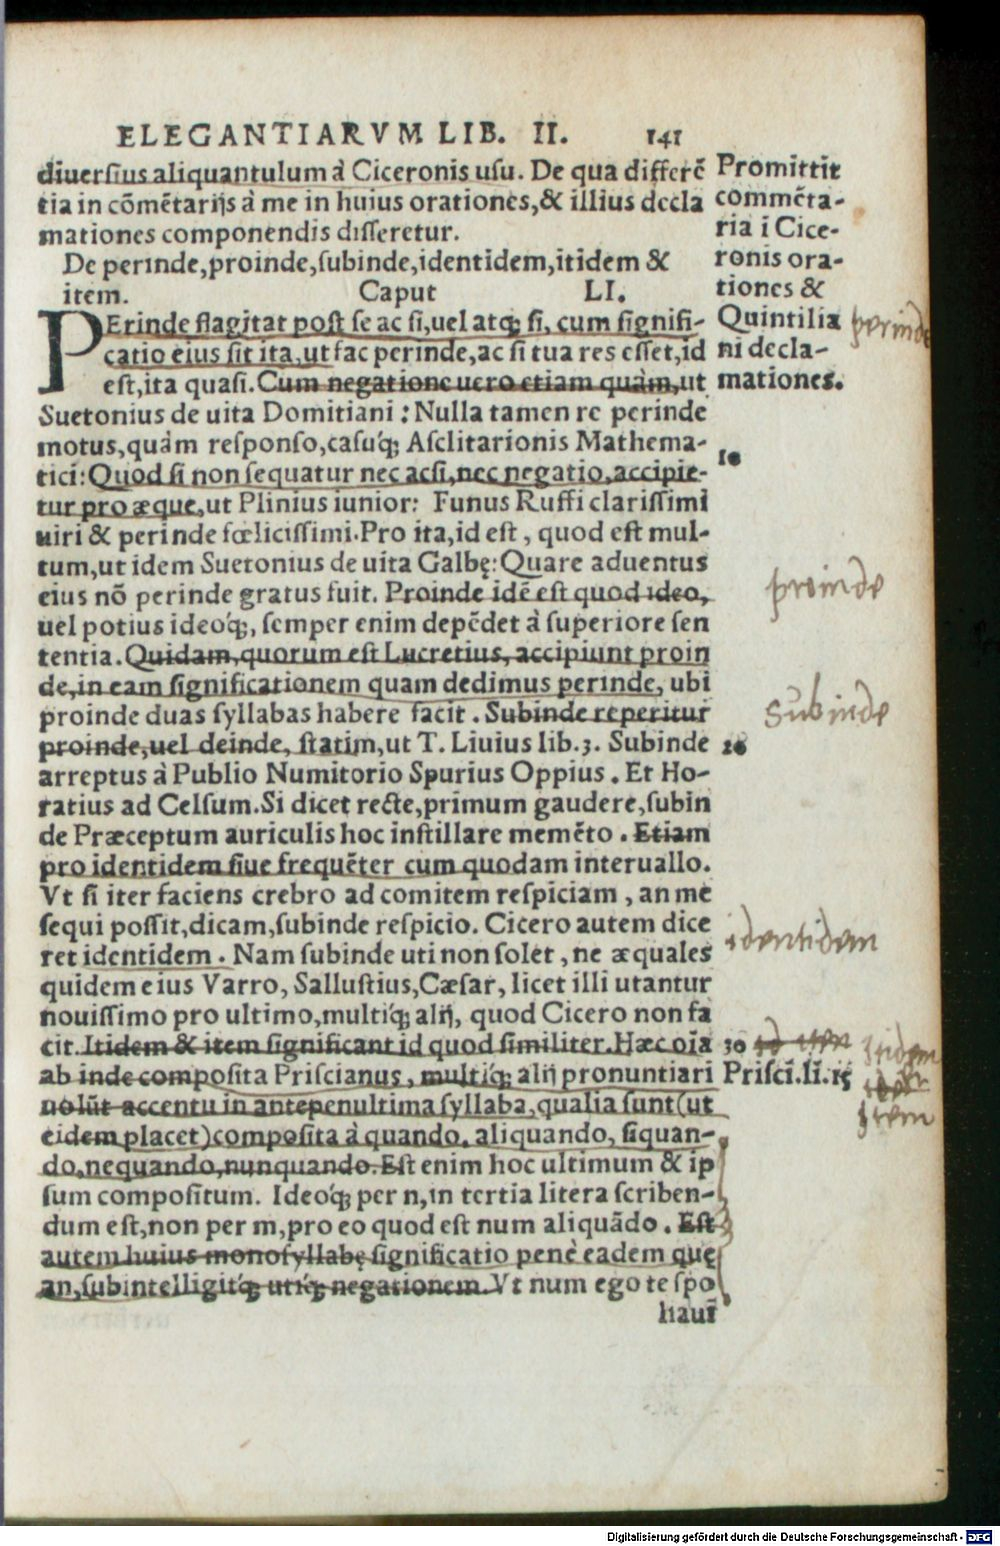 ELEGANTIARVM LIB. II. 141
diuersius aliquantulum à Ciceronis usu. De qua differẽ
tia in cõmẽtarijs à me in huius orationes, & illius decla
mationes componendis disseretur.
De perinde, proinde, subinde, identidem, itidem &
item. Caput LI.
PErinde flagitat post se ac si, uel atq; si, cum signifi-
catio eius sit ita, ut fac perinde, ac si tua res esset, id
est, ita quasi. Cum negatione uero etiam quàm, ut
Suetonius de uita Domitiani: Nulla tamen re perinde
motus, quàm responso, casuq́; Asclitarionis Mathema-
tici: Quod si non sequatur nec acsi, nec negatio, accipie-
tur pro æque, ut Plinius iunior: Funus Ruffi clarissimi
uiri & perinde fœlicissimi. Pro ita, id est, quod est mul-
tum, ut idem Suetonius de uita Galbę: Quare aduentus
eius nõ perinde gratus fuit. Proinde idẽ est quod ideo,
uel potius ideoq́;, semper enim depẽdet à superiore sen
tentia. Quidam, quorum est Lucretius, accipiunt proin
de, in eam significationem quam dedimus perinde, ubi
proinde duas syllabas habere facit. Subinde reperitur
proinde, uel deinde, statim, ut T. Liuius lib. 3. Subinde
arreptus à Publio Numitorio Spurius Oppius. Et Ho-
ratius ad Celsum. Si dicet recte, primum gaudere, subin
de Præceptum auriculis hoc instillare memẽto. Etiam
pro identidem siue frequẽter cum quodam interuallo.
Vt si iter faciens crebro ad comitem respiciam, an me
sequi possit, dicam, subinde respicio. Cicero autem dice
ret identidem. Nam subinde uti non solet, ne æquales
quidem eius Varro, Sallustius, Cæsar, licet illi utantur
nouissimo pro ultimo, multiq́; alij, quod Cicero non fa
cit. Itidem & item significant id quod similiter. Hæc oĩa
ab inde composita Priscianus, multiq́; alij pronuntiari
uolũt accentu in antepenultima syllaba, qualia sunt (ut
eidem placet) composita à quando, aliquando, siquan-
do, nequando, nunquando. Est enim hoc ultimum & ip
sum compositum. Ideoq́; per n, in tertia litera scriben-
dum est, non per m, pro eo quod est num aliquãdo. Est
autem huius monosyllabę significatio penè eadem quę
an, subintelligitq́; utiq́; negationem. Vt num ego te spo
liauĩ
Promittit
commẽta-
ria i Cice-
ronis ora-
tiones &
Quintilia
ni decla-
mationes.
perinde
10
proinde
Subinde
20
identidem
30
itidem
Prisci. li. 15
Item
Digitalisierung gefördert durch die Deutsche Forschungsgemeinschaft - DFG